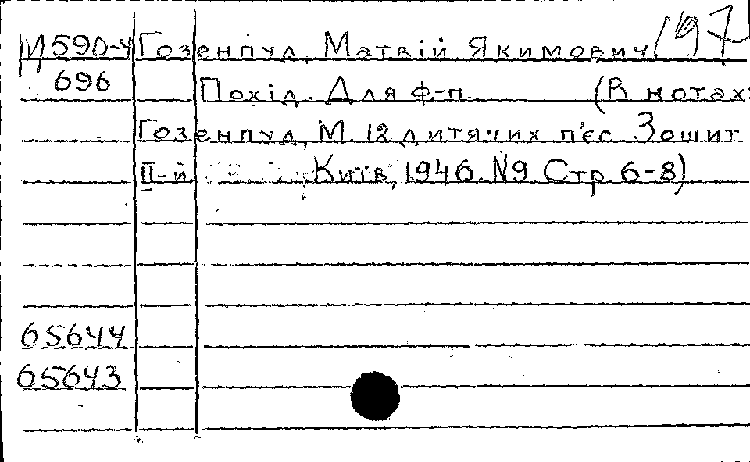 И590-4 Гозенпуд, Матвій Якимович 197
696 Похід. Для ф-п. (В нотах:
Гозенпуд, М. 12 дитячих п'єс. Зошит
ІІ-й Київ, 1946. №9. Стр. 6-8)
65644
65643